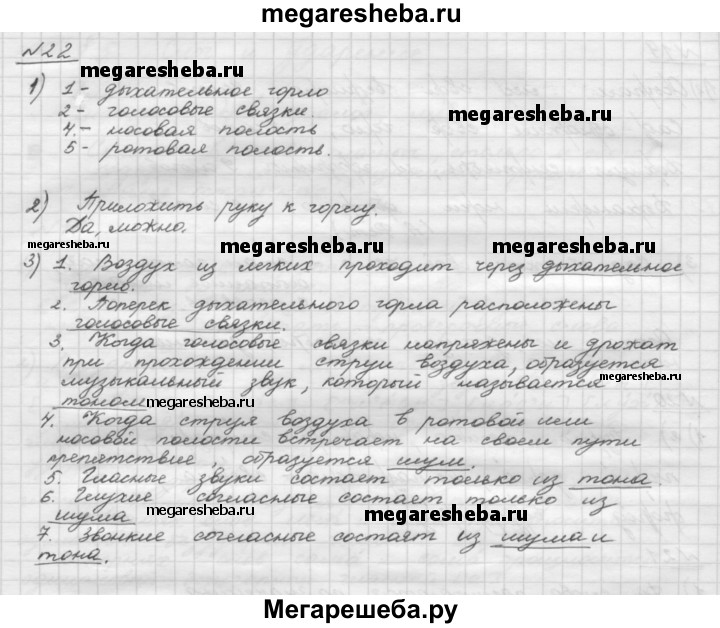 megaresheba.ru
№22
megaresheba.ru
1) 1 - дыхательное горло
2 - голосовые связки
megaresheba.ru
4. - носовая полость
5 - ротовая полость.
2) Приложить руку к горлу.
Да, можно.
megaresheba.ru megaresheba.ru megaresheba.ru
3) 1. Воздух из легких проходит через дыхательное
горло.
2. Поперек дыхательного горла расположены
голосовые связки.
3. Когда голосовые связки напряжены и дрожат
при прохождении струи воздуха, образуется
megaresheba.ru
музыкальный звук, который называется
тоном megaresheba.ru
4. Когда струя воздуха в ротовой или
носовой полости встречает на своем пути
препятствие, образуется шум.
5. Гласные звуки состоят только из тона.
6. Глухие согласные состоят только из
шума megaresheba.ru megaresheba.ru
7. Звонкие согласные состоят из шума и
тона.
Мегарешеба.ру